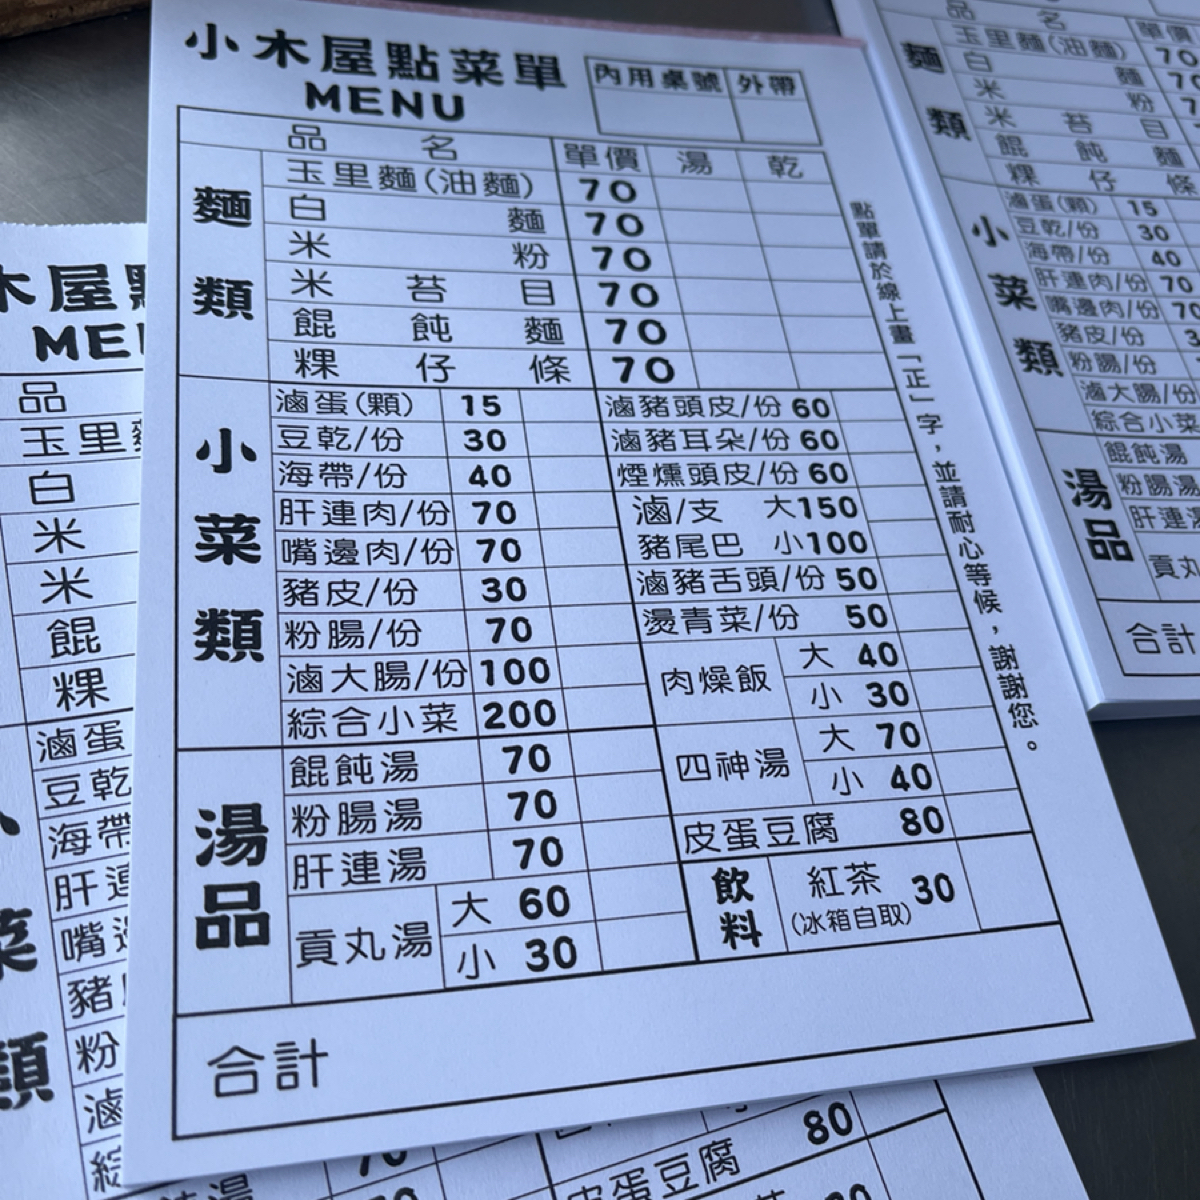 小木屋點菜單
MENU
內用桌號 外帶
品名 單價 湯 乾
麵類
玉里麵(油麵) 70
白麵 70
米粉 70
米苔目 70
餛飩麵 70
粿仔條 70
小菜類
滷蛋(顆) 15
豆乾/份 30
海帶/份 40
肝連肉/份 70
嘴邊肉/份 70
豬皮/份 30
粉腸/份 70
滷大腸/份 100
綜合小菜 200
滷豬頭皮/份 60
滷豬耳朵/份 60
煙燻頭皮/份 60
滷/支 大150
豬尾巴 小100
滷豬舌頭/份 50
燙青菜/份 50
肉燥飯 大 40
小 30
四神湯 大 70
小 40
皮蛋豆腐 80
湯品
餛飩湯 70
粉腸湯 70
肝連湯 70
貢丸湯 大 60
小 30
飲料
紅茶 30
(冰箱自取)
合計
點單請於線上畫「正」字，並請耐心等候，謝謝您。
木屋
品
玉里
白
米
米
餛
粿
滷蛋
豆乾
海帶
肝
嘴
豬
粉
滷
菜
類
品名 單價
麵類
玉里麵(油麵) 70
白麵
米粉
米苔目
餛飩麵
粿仔條
小菜類
滷蛋(顆) 15
豆乾/份 30
海帶/份 40
肝連肉/份 70
嘴邊肉/份
豬皮/份
粉腸/份
滷大腸/份
綜合小菜
湯品
餛飩湯
粉腸湯
肝連
貢丸
合計
70
80
皮蛋豆腐